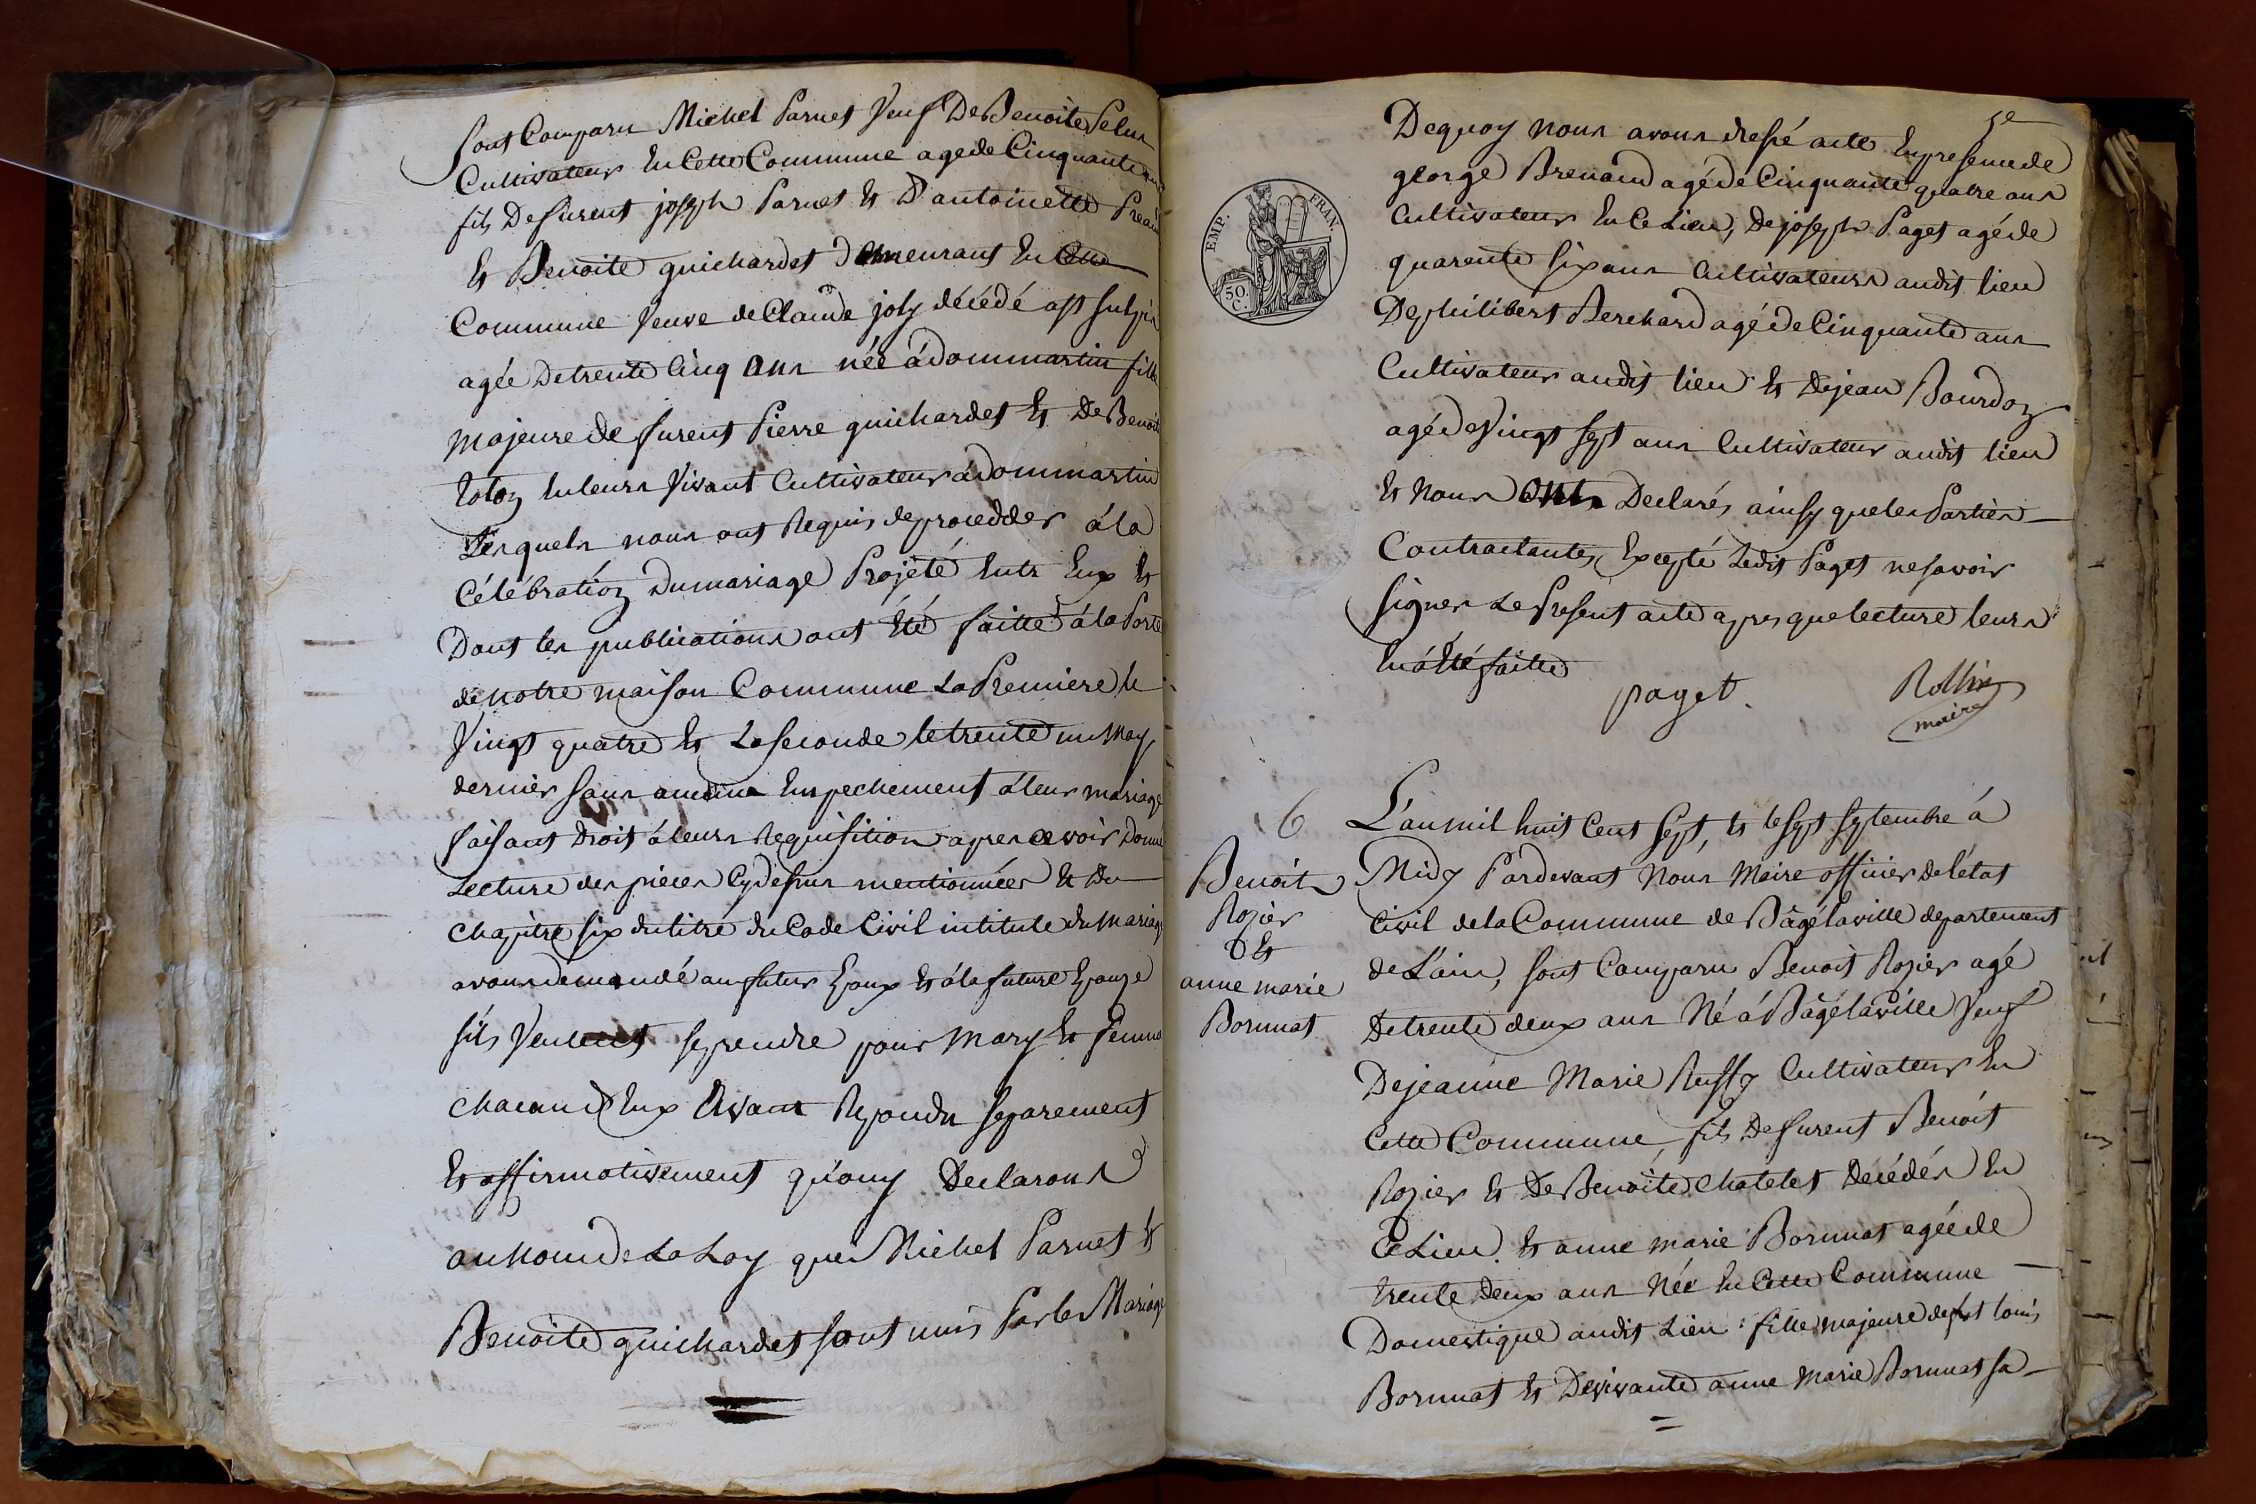 sont Comparu Michel Parnet Veuf De Benoite Pelun
Cultivateur En Cette Commune agé de Cinquante ans
fils De furent joseph Parnet Et D'antoinette
Et Benoite guichardet Demeurant En Cette
Commune Veuve de Claude joly décédé
agée De trente Cinq Ans née á dommartin fille
majeure de furent Pierre guichardet Et De Benoite
En leurs Vivant Cultivateur á dommartin
Lesquels nous ont Requis de procedder á la
Célébration Du mariage Projeté Entr Eux Et
Dont les publications ont Eté faitte á la Porte
de notre maison Commune La Premiere le
Vingt quatre Et La seconde le trente un May
dernier sans aucune Empechement á leur mariage
faisant Droit á leurs Requisition apres avoir donné
Lecture des pieces Cydessus mentionnées Et Du
Chapitre six du titre du Code Civil intitulé du Mariage
avons demandé au futur Epoux Et á la future Epouze
sils Veulent se prendre pour Mary Et femme
chacun d'Eux Ayant Repondu separement
Et affirmativement qu'ouy Declarons
au nom de La Loy que Michel Parnet Et
Benoite guichardet sont unis Par les Mariage
5e
Dequoy nous avons dressé acte En presence de
george Brenaud agé de Cinquante quatre ans
Cultivateur En Ce Lieu, De joseph Paget agé de
quarente six ans Cultivateurs audit lieu
De philibert Berchard agé de Cinquante ans
Cultivateur audit lieu Et De jean Bourdon
agé de Vingt sept ans Cultivateur audit lieu
Et Nous Ont Declarés ainsy que les Parties
Contractantes Excepté Ledit Paget ne savoir
signer Le Present acte apres que lecture leurs
En á Eté faitte
paget. Rollin
maire
EMP. FRAN.
50 C.
6
Benoit
Rozier
Et
anne marie
Bornnat
L'an mil huit Cent sept, Et le sept septembre á
Midy Pardevant Nous Maire officier de l'état
Civil de la Commune de Bâgélaville departement
de L'ain, sont Comparu Benoit Rozier agé
De trente deux ans Né á Bâgélaville Veuf
De jeanne Marie Ruffy Cultivateur En
Cette Commune, fils De furent Benoit
Rozier Et De Benoite Chatelet Décédés En
Ce Lieu. Et anne marie Bornnat agée de
trente Deux ans Née En Cette Commune
Domestique audit Lieu: fille majeure de fut louis
Bornnat Et De vivante anne Marie Bornnat sa